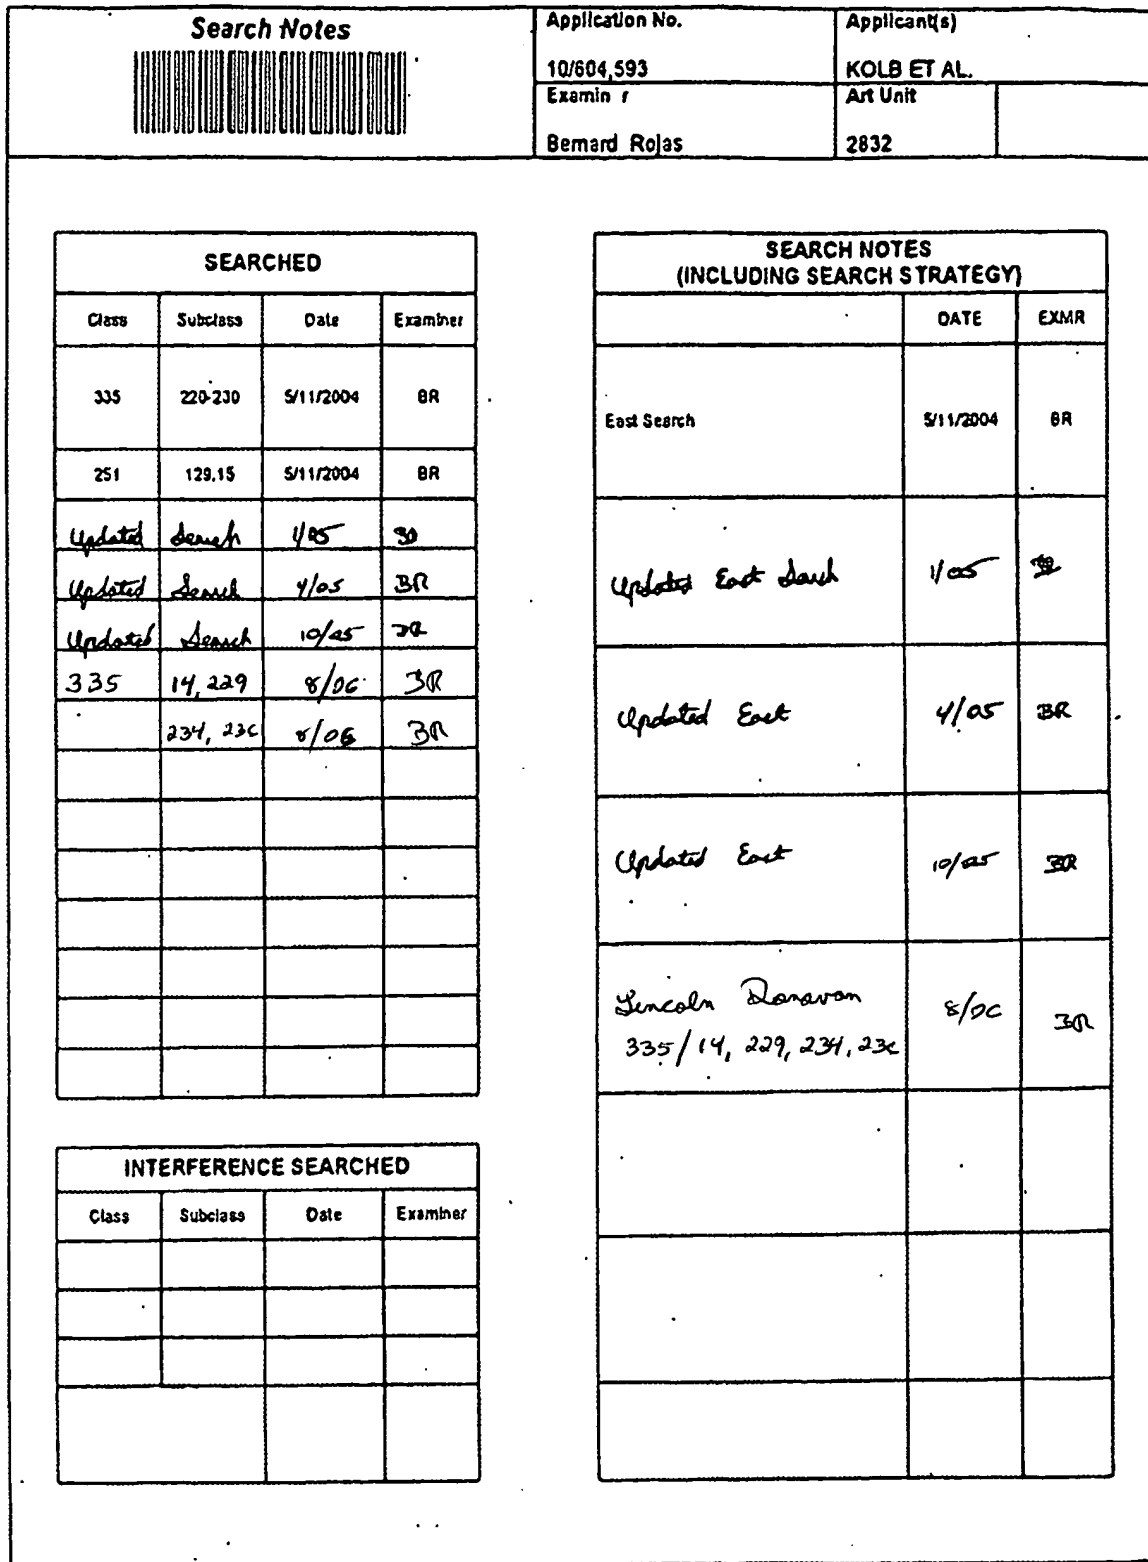 Search Notes
Application No.
Applicant(s)
10/604,593
KOLB ET AL.
Examin r
Art Unit
Bernard Rojas
2832
SEARCHED
Class Subclass Date Examiner
335 220-230 5/11/2004 BR
251 129.15 5/11/2004 BR
Updated Search 1/05
Updated Search 4/05 BR
Updated Search 10/05 BR
335 14, 229 8/06 BR
234, 236 8/06 BR
INTERFERENCE SEARCHED
Class Subclass Date Examiner
SEARCH NOTES
(INCLUDING SEARCH STRATEGY)
DATE EXMR
East Search 5/11/2004 BR
Updated East Search 1/05
Updated East 4/05 BR
Updated East 10/05 BR
Lincoln Donovan 8/06 BR
335/14, 229, 234, 236